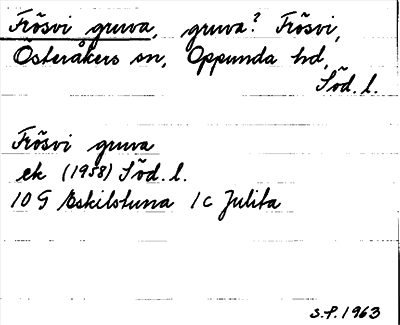 Frösvi gruva, gruva? Frösvi,
Österåkers sn, Oppunda hd,
Söd. l.
Frösvi gruva
ek (1958) Söd. l.
10 G Eskilstuna 1 c Julita
S.P. 1963